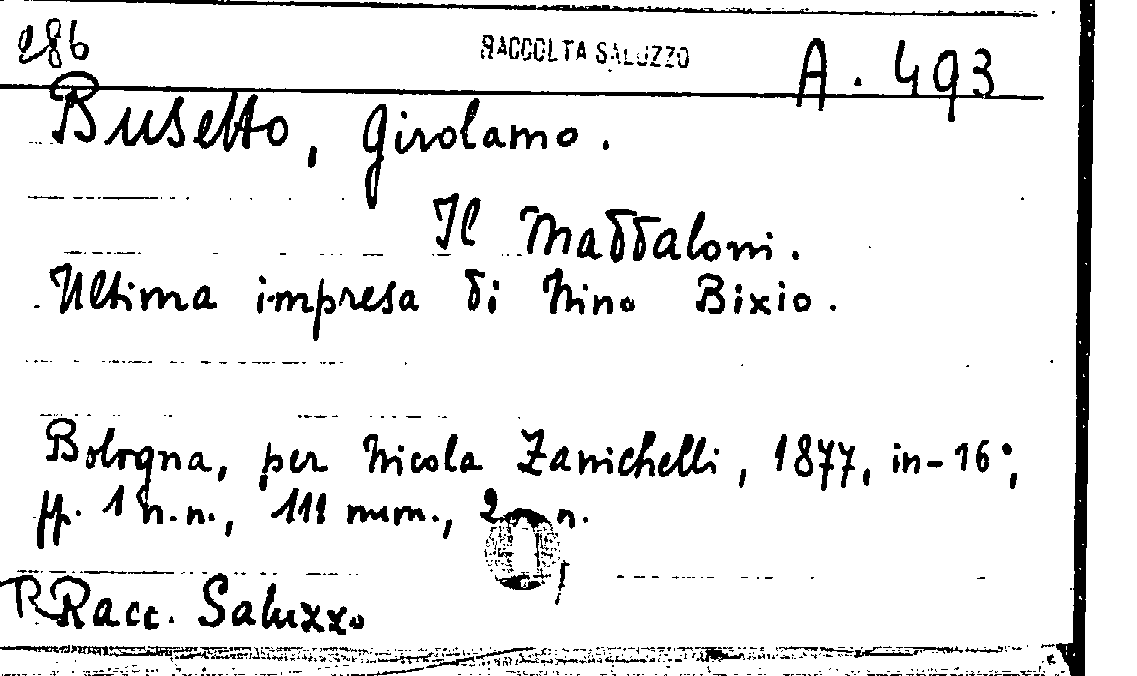 286 RACCOLTA SALUZZO A. 493
Busetto, Girolamo.
Il Maddaloni.
Ultima impresa di Nino Bixio.
Bologna, per Nicola Zanichelli, 1877, in-16°,
pp. 1 n.n., 111 num., 2 n.
Racc. Saluzzo